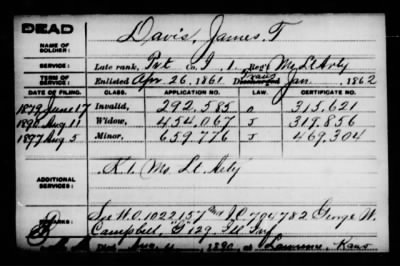 DEAD
NAME OF SOLDIER: Davis, James T
SERVICE: Late rank, Pvt Co. I, 1 Reg't Mo. Lt Arty
TERM OF SERVICE: Enlisted Apr. 26, 1861 Trans Jan. 1862
DATE OF FILING. CLASS. APPLICATION NO. LAW. CERTIFICATE NO.
1879 June 17 Invalid, 292.585 315.621
Aug 11 Widow, 454.067 319.856
1897 Aug. 5 Minor, 659.776 469.304
ADDITIONAL SERVICES: Mo. Lt. Arty
REMARKS: See W.O. 1022157 & C 704782 George W.
Campbell, "G" 129, Ill Inf.
1890 at Lawrence, Kans